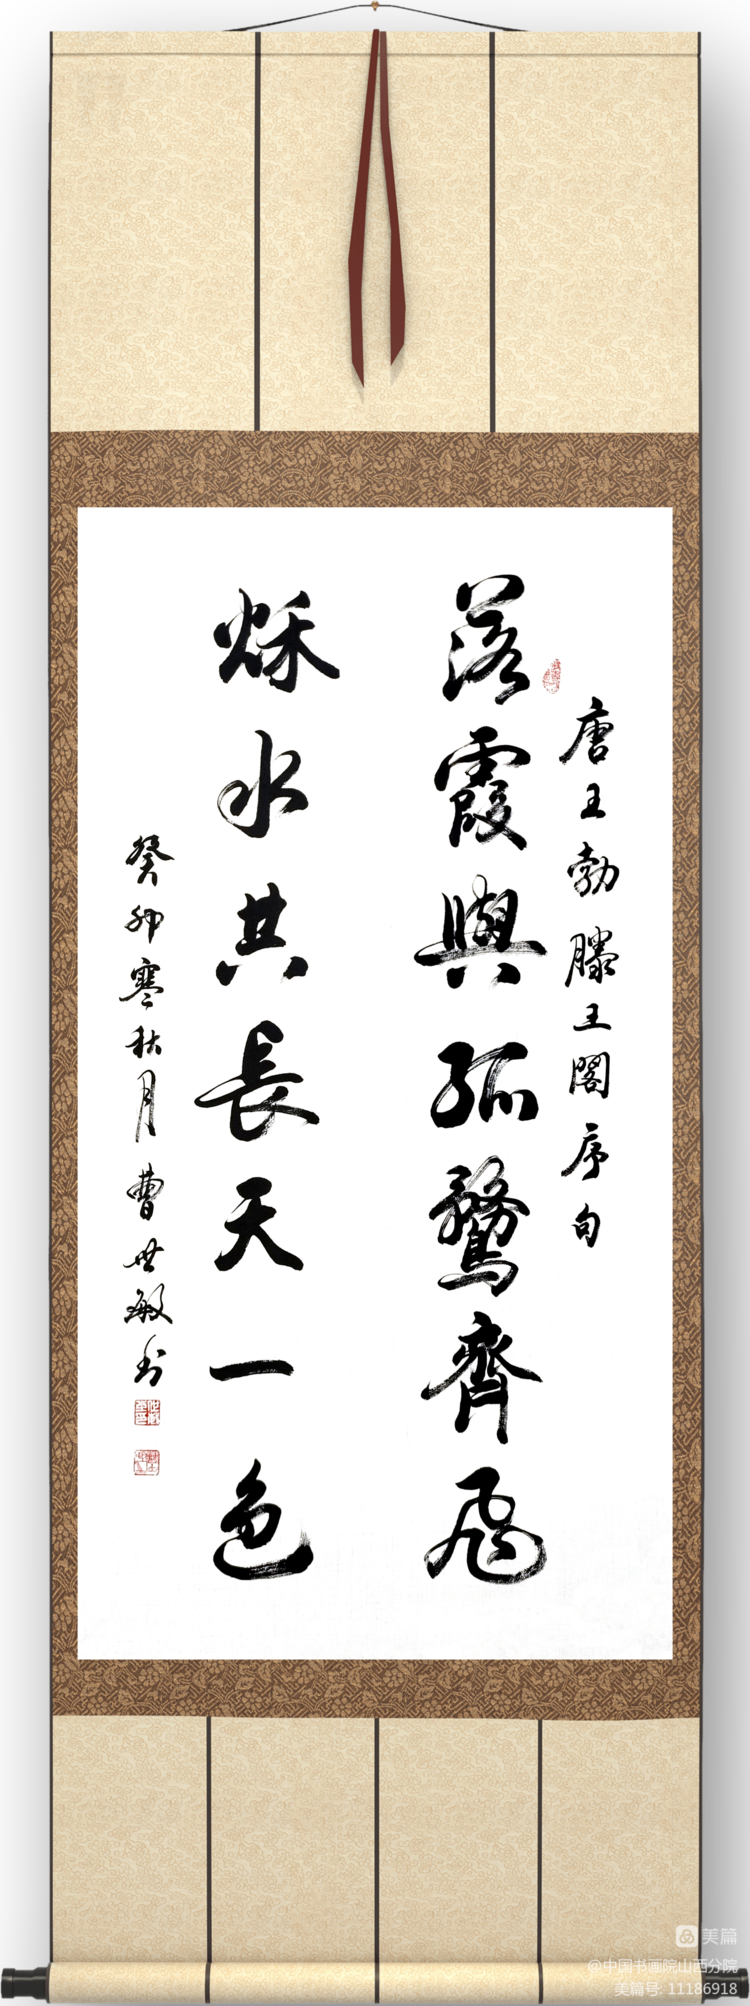 唐王勃滕王閣序句
落霞與孤鶩齊飛
秌水共長天一色
癸卯寒秋月曹世敏书
美篇
@中国书画院山西分院
美篇号: 11186918